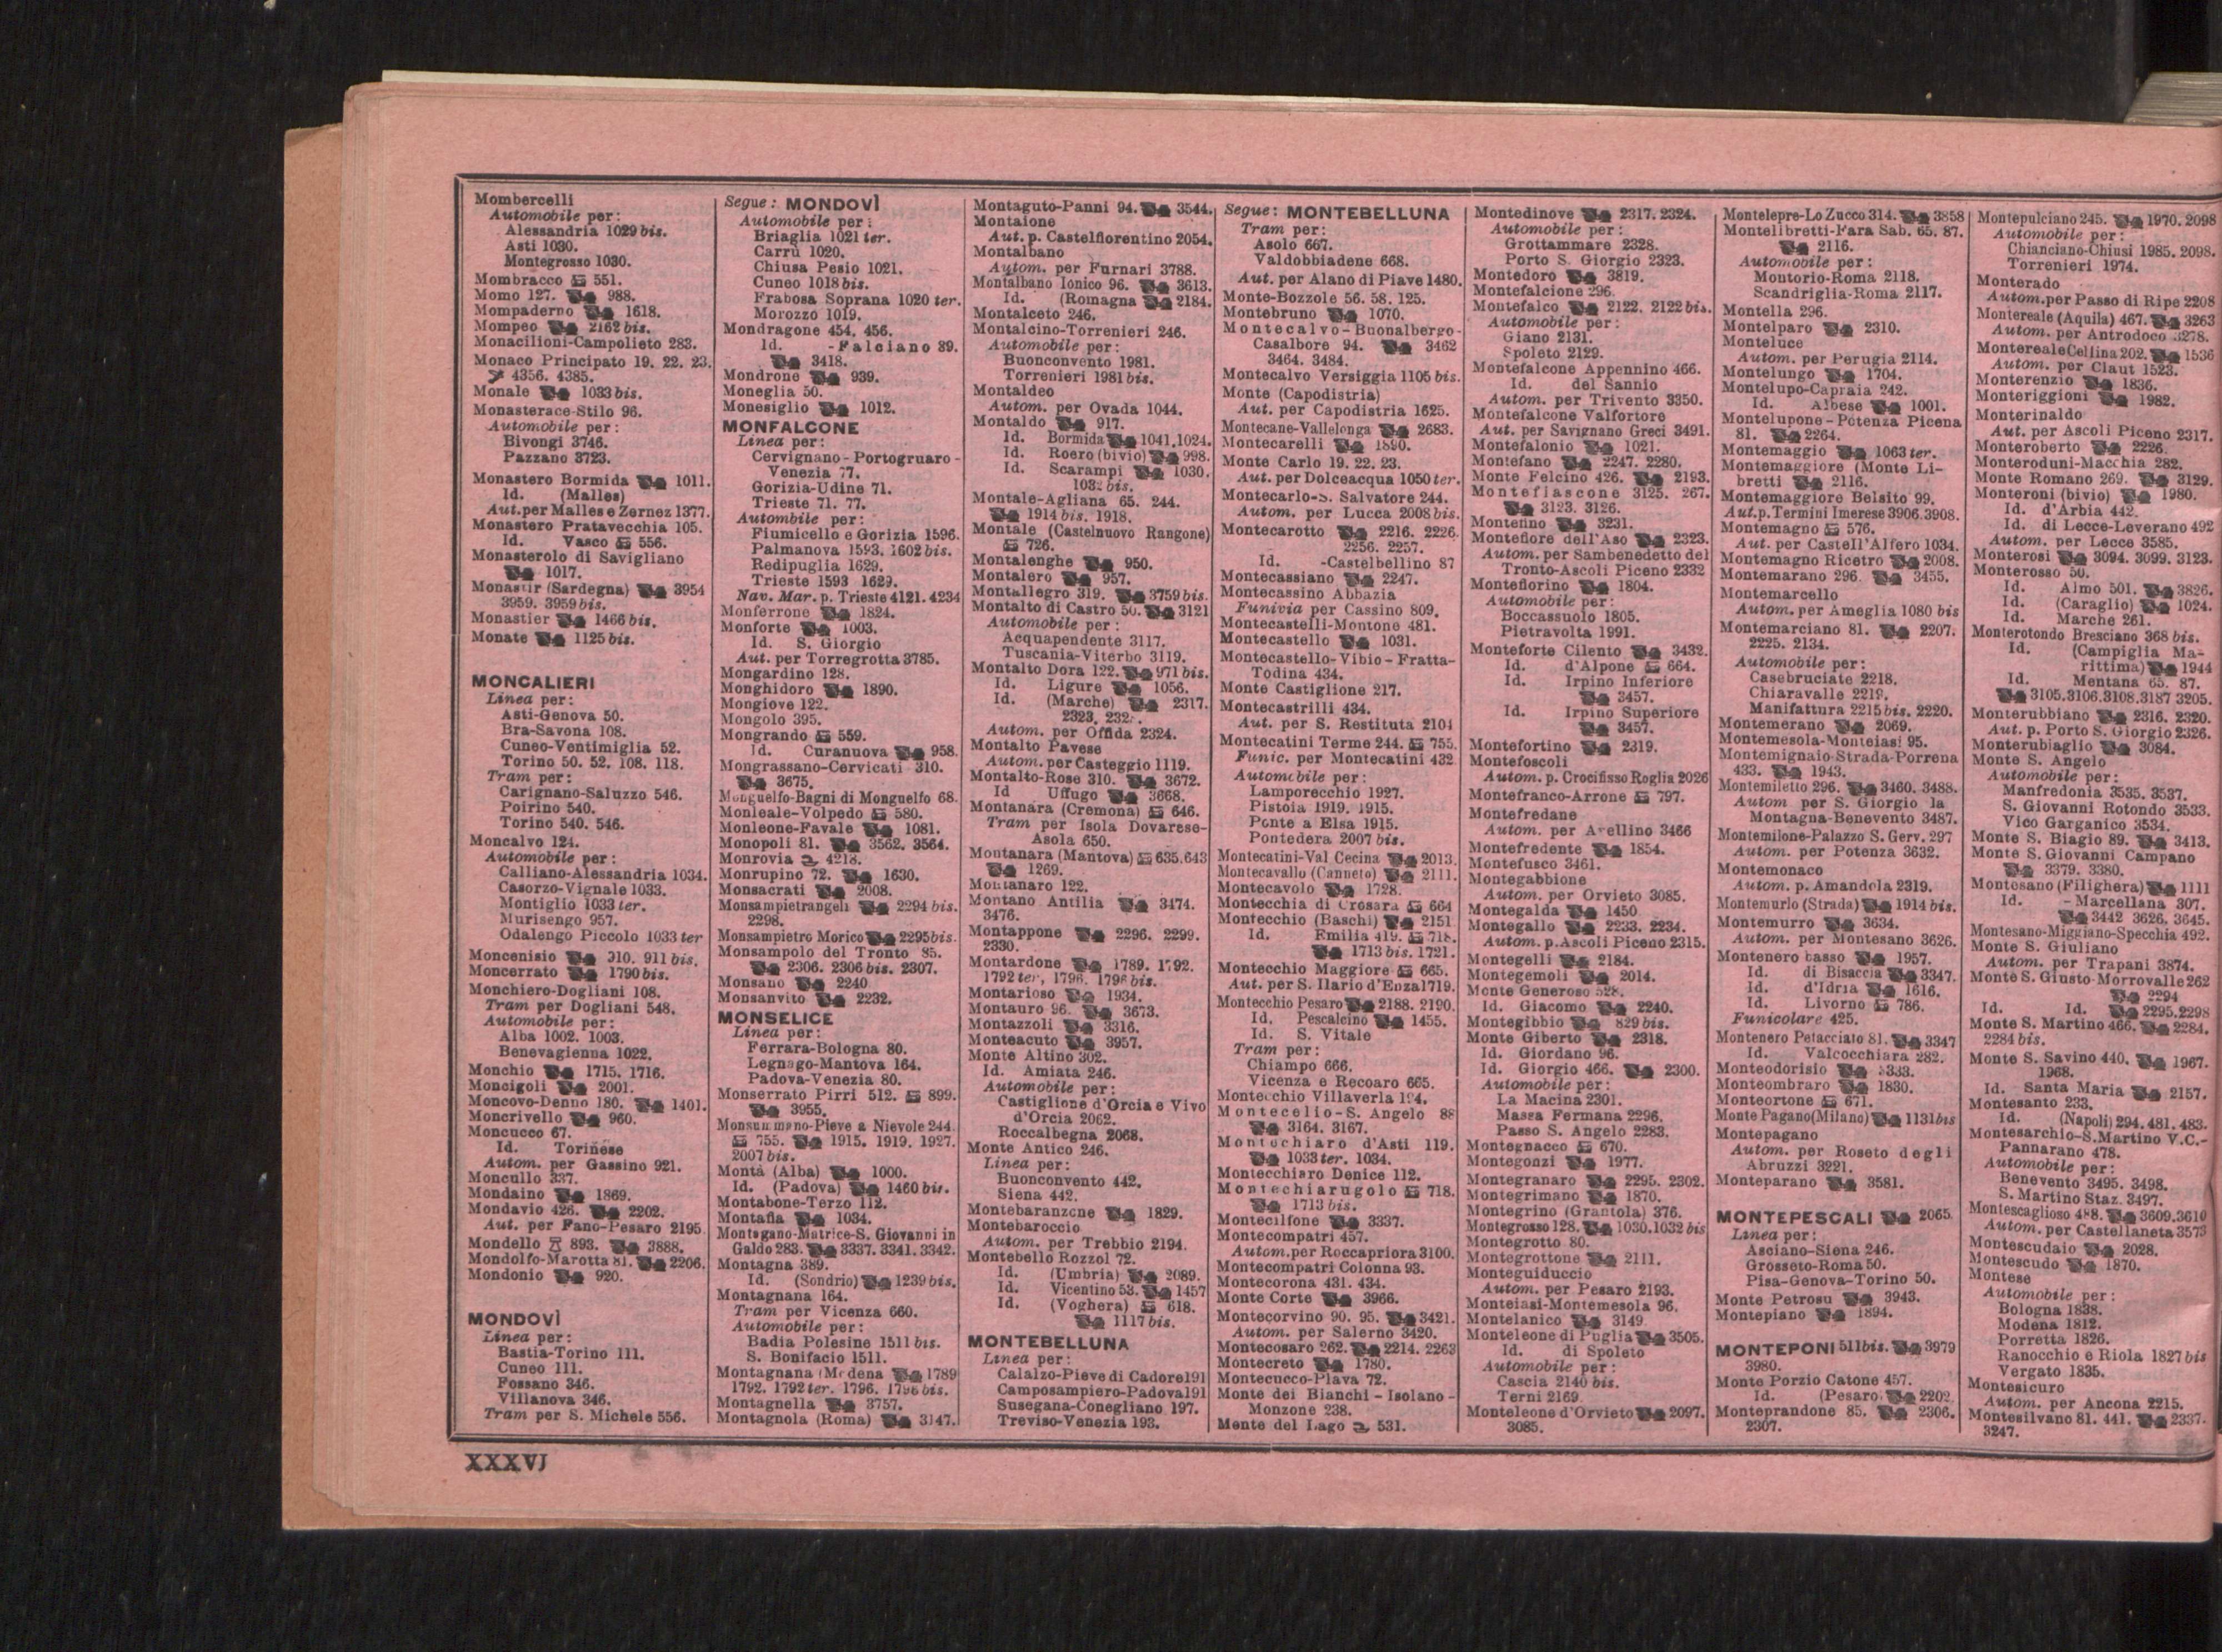 Mombercelli
Automobile per:
Alessandria 1029 bis.
Asti 1030.
Montegrosso 1030.
Mombracco 551.
Momo 127. 988.
Mompaderno 1618.
Mompeo 2162 bis.
Monacilioni-Campolieto 283.
Monaco Principato 19. 22. 23.
4356. 4385.
Monale 1033 bis.
Monasterace-Stilo 96.
Automobile per:
Bivongi 3746.
Pazzano 3723.
Monastero Bormida 1011.
Id. (Malles)
Aut. per Malles e Zernez 1377.
Monastero Pratavecchia 105.
Id. Vasco 556.
Monasterolo di Savigliano
1017.
Monastir (Sardegna) 3954
3959. 3959 bis.
Monastier 1466 bis.
Monate 1125 bis.
MONCALIERI
Linea per:
Asti-Genova 50.
Bra-Savona 108.
Cuneo-Ventimiglia 52.
Torino 50. 52. 108. 118.
Tram per:
Carignano-Saluzzo 546.
Poirino 540.
Torino 540. 546.
Moncalvo 124.
Automobile per:
Calliano-Alessandria 1034.
Casorzo-Vignale 1033.
Montiglio 1033 ter.
Murisengo 957.
Odalengo Piccolo 1033 ter
Moncenisio 910. 911 bis.
Moncerrato 1790 bis.
Monchiero-Dogliani 108.
Tram per Dogliani 548.
Automobile per:
Alba 1002. 1003.
Benevagienna 1022.
Monchio 1715. 1716.
Moncigoli 2001.
Moncovo-Denno 180. 1401.
Moncrivello 960.
Moncucco 67.
Id. Torinese
Autom. per Gassino 921.
Moncullo 337.
Mondaino 1869.
Mondavio 426. 2202.
Aut. per Fano-Pesaro 2195.
Mondello 893. 3888.
Mondolfo-Marotta 81. 2206.
Mondonio 920.
MONDOVÌ
Linea per:
Bastia-Torino 111.
Cuneo 111.
Fossano 346.
Villanova 346.
Tram per S. Michele 556.
Segue: MONDOVÌ
Automobile per:
Briaglia 1021 ter.
Carrù 1020.
Chiusa Pesio 1021.
Cuneo 1018 bis.
Frabosa Soprana 1020 ter.
Morozzo 1019.
Mondragone 454. 456.
Id. -Falciano 89.
3418.
Mondrone 939.
Moneglia 50.
Monesiglio 1012.
MONFALCONE
Linea per:
Cervignano-Portogruaro-
Venezia 77.
Gorizia-Udine 71.
Trieste 71. 77.
Automobile per:
Fiumicello e Gorizia 1596.
Palmanova 1593. 1602 bis.
Redipuglia 1629.
Trieste 1593 1629.
Nav. Mar. p. Trieste 4121. 4234
Monferrone 1824.
Monforte 1003.
Id. S. Giorgio
Aut. per Torregrotta 3785.
Mongardino 128.
Monghidoro 1890.
Mongiove 122.
Mongolo 395.
Mongrando 559.
Id. Curanuova 958.
Mongrassano-Cervicati 310.
3675.
Monguelfo-Bagni di Monguelfo 68.
Monleale-Volpedo 580.
Monleone-Favale 1081.
Monopoli 81. 3562. 3564.
Monrovia 4218.
Monrupino 72. 1630.
Monsacrati 2008.
Monsampietrangeli 2294 bis.
2298.
Monsampietro Morico 2295 bis.
Monsampolo del Tronto 85.
2306. 2306 bis. 2307.
Monsano 2240
Monsanvito 2232.
MONSELICE
Linea per:
Ferrara-Bologna 80.
Legnago-Mantova 164.
Padova-Venezia 80.
Monserrato Pirri 512. 899.
3955.
Monsummano-Pieve a Nievole 244.
755. 1915. 1919. 1927.
2007 bis.
Montà (Alba) 1000.
Id. (Padova) 1460 bis.
Montabone-Terzo 112.
Montafia 1034.
Montagano-Matrice-S. Giovanni in
Galdo 283. 3337. 3341. 3342.
Montagna 389.
Id. (Sondrio) 1239 bis.
Montagnana 164.
Tram per Vicenza 660.
Automobile per:
Badia Polesine 1511 bis.
S. Bonifacio 1511.
Montagnana (Modena 1789
1792. 1792 ter. 1796. 1796 bis.
Montagnella 3757.
Montagnola (Roma) 3147.
Montaguto-Panni 94. 3544.
Montaione
Aut. p. Castelfiorentino 2054.
Montalbano
Autom. per Furnari 3788.
Montalbano Ionico 96. 3613.
Id. (Romagna 2184.
Montalceto 246.
Montalcino-Torrenieri 246.
Automobile per:
Buonconvento 1981.
Torrenieri 1981 bis.
Montaldeo
Autom. per Ovada 1044.
Montaldo 917.
Id. Bormida 1041. 1024.
Id. Roero (bivio) 998.
Id. Scarampi 1030.
1032 bis.
Montale-Agliana 65. 244.
1914 bis. 1918.
Montale (Castelnuovo Rangone)
726.
Montalenghe 950.
Montalero 957.
Montallegro 319. 3759 bis.
Montalto di Castro 50. 3121
Automobile per:
Acquapendente 3117.
Tuscania-Viterbo 3119.
Montalto Dora 122. 971 bis.
Id. Ligure 1056.
Id. (Marche) 2317.
2323.
Autom. per Offida 2324.
Montalto Pavese
Autom. per Casteggio 1119.
Montalto-Rose 310. 3672.
Id Uffugo 3668.
Montanara (Cremona) 646.
Tram per Isola Dovarese-
Asola 650.
Montanara (Mantova) 635. 643
1269.
Montanaro 122.
Montano Antilia 3474.
3476.
Montappone 2296. 2299.
2330.
Montardone 1789. 1792.
1792 ter. 1796. 1796 bis.
Montarioso 1934.
Montauro 96. 3673.
Montazzoli 3316.
Monteacuto 3957.
Monte Altino 302.
Id. Amiata 246.
Automobile per:
Castiglione d'Orcia e Vivo
d'Orcia 2062.
Roccalbegna 2068.
Monte Antico 246.
Linea per:
Buonconvento 442.
Siena 442.
Montebaranzone 1829.
Montebaroccio
Autom. per Trebbio 2194.
Montebello Rozzol 72.
Id. (Umbria) 2089.
Id. Vicentino 53. 1457
Id. (Voghera) 618.
1117 bis.
MONTEBELLUNA
Linea per:
Calalzo-Pieve di Cadore 191
Camposampiero-Padova 191
Susegana-Conegliano 197.
Treviso-Venezia 193.
Segue: MONTEBELLUNA
Tram per:
Asolo 667.
Valdobbiadene 668.
Aut. per Alano di Piave 1480.
Monte-Bozzole 56. 58. 125.
Montebruno 1070.
Montecalvo-Buonalbergo-
Casalbore 94. 3462
3464. 3484.
Montecalvo Versiggia 1105 bis.
Monte (Capodistria)
Aut. per Capodistria 1625.
Montecane-Vallelonga 2683.
Montecarelli 1890.
Monte Carlo 19. 22. 23.
Aut. per Dolceacqua 1050 ter.
Montecarlo-S. Salvatore 244.
Autom. per Lucca 2008 bis.
Montecarotto 2216. 2226.
2256. 2257.
Id. -Castelbellino 87
Montecassiano 2247.
Montecassino Abbazia
Funivia per Cassino 809.
Montecastelli-Montone 481.
Montecastello 1031.
Montecastello-Vibio-Fratta-
Todina 434.
Monte Castiglione 217.
Montecastrilli 434.
Aut. per S. Restituta 2104
Montecatini Terme 244. 755.
Funic. per Montecatini 432.
Automobile per:
Lamporecchio 1927.
Pistoia 1919. 1915.
Ponte a Elsa 1915.
Pontedera 2007 bis.
Montecatini-Val Cecina 2013.
Montecavallo (Canneto) 2111.
Montecavolo 1728.
Montecchia di Crosara 664
Montecchio (Baschi) 2151
Id. Emilia 419. 718.
1713 bis. 1721.
Montecchio Maggiore 665.
Aut. per S. Ilario d'Enza 1719.
Montecchio Pesaro 2188. 2190.
Id. Pescalcino 1455.
Id. S. Vitale
Tram per:
Chiampo 666.
Vicenza e Recoaro 665.
Montecchio Villaverla 194.
Montecelio-S. Angelo 88
3164. 3167.
Montechiaro d'Asti 119.
1033 ter. 1034.
Montecchiaro Denice 112.
Montechiarugolo 718.
1713 bis.
Montecilfone 3337.
Montecompatri 457.
Autom. per Roccapriora 3100.
Montecompatri Colonna 93.
Montecorona 431. 434.
Monte Corte 3966.
Montecorvino 90. 95. 3421.
Autom. per Salerno 3420.
Montecosaro 262. 2214. 2263
Montecreto 1780.
Montecucco-Plava 72.
Monte dei Bianchi-Isolano-
Monzone 238.
Monte del Lago 531.
Montedinove 2317. 2324.
Automobile per:
Grottammare 2328.
Porto S. Giorgio 2323.
Montedoro 3819.
Montefalcione 296.
Montefalco 2122. 2122 bis.
Automobile per:
Giano 2131.
Spoleto 2129.
Montefalcone Appennino 466.
Id. del Sannio
Autom. per Trivento 3350.
Montefalcone Valfortore
Aut. per Savignano Greci 3491.
Montefalonio 1021.
Montefano 2247. 2280.
Monte Felcino 426. 2193.
Montefiascone 3125. 267.
3123. 3126.
Montefino 3231.
Montefiore dell'Aso 2323.
Autom. per Sambenedetto del
Tronto-Ascoli Piceno 2332
Montefiorino 1804.
Automobile per:
Boccassuolo 1805.
Pietravolta 1991.
Monteforte Cilento 3432.
Id. d'Alpone 664.
Id. Irpino Inferiore
3457.
Id. Irpino Superiore
3457.
Montefortino 2319.
Montefoscoli
Autom. p. Crocifisso Roglia 2026
Montefranco-Arrone 797.
Montefredane
Autom. per Avellino 3466
Montefredente 1854.
Montefusco 3461.
Montegabbione
Autom. per Orvieto 3085.
Montegalda 1450
Montegallo 2233. 2234.
Autom. p. Ascoli Piceno 2315.
Montegelli 2184.
Montegemoli 2014.
Monte Generoso 528.
Id. Giacomo 2240.
Montegibbio 829 bis.
Monte Giberto 2318.
Id. Giordano 96.
Id. Giorgio 466. 2300.
Automobile per:
La Macina 2301.
Massa Fermana 2296.
Passo S. Angelo 2283.
Montegnacco 670.
Montegonzi 1977.
Montegranaro 2295. 2302.
Montegrimano 1870.
Montegrino (Grantola) 376.
Montegrosso 128. 1030. 1032 bis
Montegrotto 80.
Montegrottone 2111.
Monteguiduccio
Autom. per Pesaro 2193.
Monteiasi-Montemesola 96.
Montelanico 3149
Monteleone di Puglia 3505.
Id. di Spoleto
Automobile per:
Cascia 2140 bis.
Terni 2169
Monteleone d'Orvieto 2097.
3085.
Montelepre-Lo Zucco 314. 3858
Montelibretti-Fara Sab. 65. 87.
2116.
Automobile per:
Montorio-Roma 2118.
Scandriglia-Roma 2117.
Montella 296.
Montelparo 2310.
Monteluce
Autom. per Perugia 2114.
Montelungo 1704.
Montelupo-Capraia 242.
Id. Albese 1001.
Montelupone-Potenza Picena
81. 2264.
Montemaggio 1063 ter.
Montemaggiore (Monte Li-
bretti 2116.
Montemaggiore Belsito 99.
Aut. p. Termini Imerese 3906. 3908.
Montemagno 576.
Aut. per Castell'Alfero 1034.
Montemagno Ricetro 2008.
Montemarano 296. 3455.
Montemarcello
Autom. per Ameglia 1080 bis
Montemarciano 81. 2207.
2225. 2134.
Automobile per:
Casebruciate 2218.
Chiaravalle 2219.
Manifattura 2215 bis. 2220.
Montemerano 2069.
Montemesola-Monteiasi 95.
Montemignaio-Strada-Porrena
433. 1943.
Montemiletto 296. 3460. 3488.
Autom per S. Giorgio la
Montagna-Benevento 3487.
Montemilone-Palazzo S. Gerv. 297
Autom. per Potenza 3632.
Montemonaco
Autom. p. Amandola 2319.
Montemurlo (Strada) 1914 bis.
Montemurro 3634.
Autom. per Montesano 3626.
Montenero basso 1957.
Id. di Bisaccia 3347.
Id. d'Idria 1616.
Id. Livorno 786.
Funicolare 425.
Montenero Petacciato 81. 3347
Id. Valcocchiara 282.
Monteodorisio 3333.
Monteombraro 1830.
Monteortone 671.
Monte Pagano (Milano) 1131 bis
Montepagano
Autom. per Roseto degli
Abruzzi 3221.
Monteparano 3581.
MONTEPESCALI 2065
Linea per:
Asciano-Siena 246.
Grosseto-Roma 50.
Pisa-Genova-Torino 50.
Monte Petrosu 3943.
Montepiano 1894.
MONTEPONI 511 bis. 3979
3980.
Monte Porzio Catone 457.
Id. (Pesaro 2202
Monteprandone 85. 2306.
2307.
Montepulciano 245. 1970. 2098
Automobile per:
Chianciano-Chiusi 1985. 2098.
Torrenieri 1974.
Monterado
Autom. per Passo di Ripe 2208
Montereale (Aquila) 467. 3263
Autom. per Antrodoco 3278.
Montereale Cellina 202. 1536
Autom. per Claut 1523.
Monterenzio 1836.
Monteriggioni 1982.
Monterinaldo
Aut. per Ascoli Piceno 2317.
Monteroberto 2226.
Monteroduni-Macchia 282.
Monte Romano 269. 3129.
Monteroni (bivio) 1980.
Id. d'Arbia 442.
Id. di Lecce-Leverano 492
Autom. per Lecce 3585.
Monterosi 3094. 3099. 3123.
Monterosso 50.
Id. Almo 501. 3826.
Id. (Caraglio) 1024.
Id. Marche 261.
Monterotondo Bresciano 368 bis.
Id. (Campiglia Ma-
rittima) 1944
Id. Mentana 65. 87.
3105. 3106. 3108. 3187 3205.
Monterubbiano 2316. 2320.
Aut. p. Porto S. Giorgio 2326.
Monterubiaglio 3084.
Monte S. Angelo
Automobile per:
Manfredonia 3535. 3537.
S. Giovanni Rotondo 3533.
Vico Garganico 3534.
Monte S. Biagio 89. 3413.
Monte S. Giovanni Campano
3379. 3380.
Montesano (Filighera) 1111
Id. -Marcellana 307.
3442 3626. 3645.
Montesano-Miggiano-Specchia 492.
Monte S. Giuliano
Autom. per Trapani 3874.
Monte S. Giusto-Morrovalle 262
2294
Id. Id. 2295. 2298
Monte S. Martino 466. 2284.
2284 bis.
Monte S. Savino 440. 1967.
1968.
Id. Santa Maria 2157.
Montesanto 233.
Id. (Napoli) 294. 481. 483.
Montesarchio-S. Martino V.C.-
Pannarano 478.
Automobile per:
Benevento 3495. 3498.
S. Martino Staz. 3497.
Montescaglioso 488. 3609. 3610
Autom. per Castellaneta 3573
Montescudaio 2028.
Montescudo 1870.
Montese
Automobile per:
Bologna 1838.
Modena 1812.
Porretta 1826.
Ranocchio e Riola 1827 bis
Vergato 1835.
Montesicuro
Autom. per Ancona 2215.
Montesilvano 81. 441. 2337.
3247.
XXXVJ